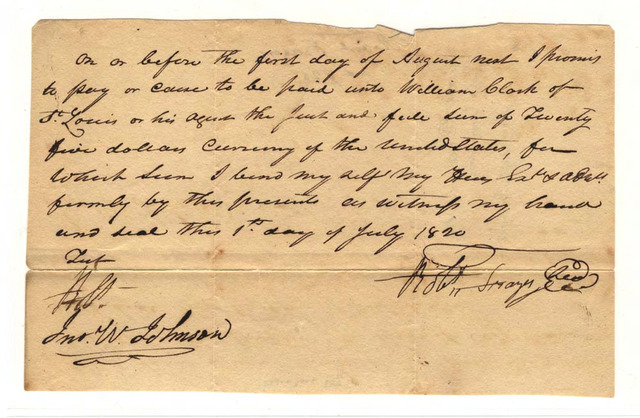 On or before the first day of August next I promis
to pay or cause to be paid unto William Clark of
St Louis or his agent the Just and full sum of Twenty
five dollars Currency of the United States, for
Which Sum I bind my self My Heirs Exrs & adms
firmly by this presents as witness my hand
and seal this 1st day of July 1820
Test
Robt Frazer Seal
Jno. W. Johnson